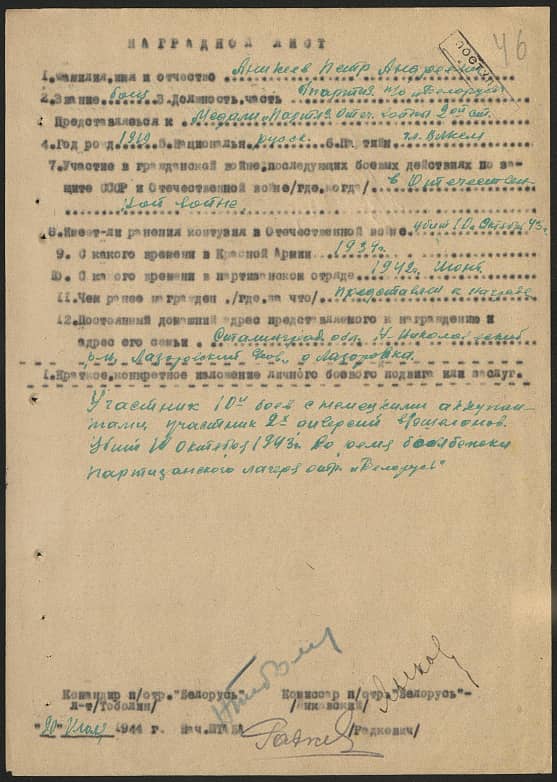 46
ПОСТУП
НАГРАДНОЙ ЛИСТ
1.Фамилия,имя и отчество Аникеев Петр Андреевич
2.Звание боец 3.Должность,часть Партиз. п/о "Белорусь"
Представляется к Медали "Партиз. Отеч. войны 2ой ст.
4.Год рожд 1919 5.Национальн русск. 6.Партийн чл. ВЛКСМ
7.Участие в гражданской войне,последующих боевых действиях по за-
щите СССР и Отечественной войне/где,когда/ в Отечествен-
ной войне.
8.Имеет-ли ранения контузия в Отечественной войне. убит 10. Октября 43 г.
9. С какого времени в Красной Армии 1939г.
10. С какого времени в партизанском отряде. 1942г. Июнь
11.Чем ранее награжден ./где,за что/ Представлен к награде
12.Постоянный домашний адрес представляемого к награждению и
адрес его семьи . Сталинградск. обл. Н-Николаевский
р-н, Лазоревский д. Лазоревка.
1.Краткое,конкретное изложение личного боевого подвига или заслуг.
Участник 10и боев с немецкими оккупан-
тами, участник 2х диверсий эшелонов.
Убит 10 Октября 1943г. Во время бомбежки
партизанского лагеря отр. "Белорусь"
Командир п/отр."Белорусь" Комиссар п/отр."Белорусь"-
Л-т/Тоболин/ /Быковский/
"20" Мая 1944 г. Нач.ШТАБА /Радкевич/